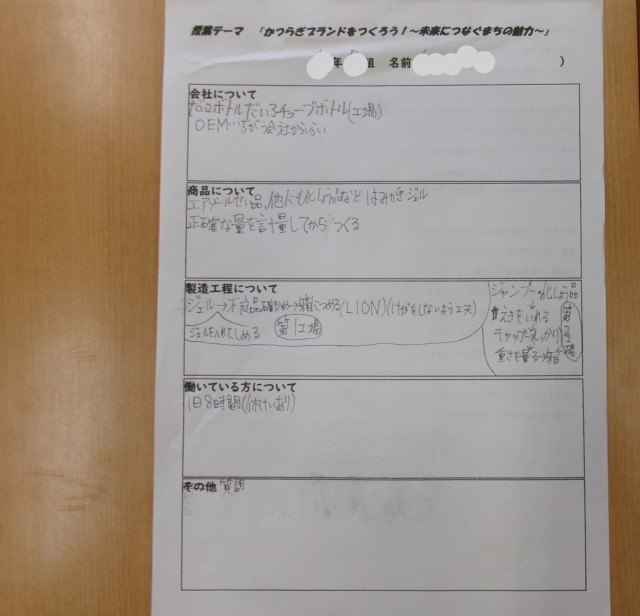 授業テーマ 「かつらぎブランドをつくろう！～未来につなぐまちの魅力～」
年 組 名前 )
会社について
ボトル チューブボトル(工場)
OEM…ちがう会社から
商品について
エアゾールせい品、他にも化しょう品など はみがきジェル
正確な量を計量してから つくる
製造工程について
ジェル→不良品 →箱につめる(LION)(けがをしないよう工夫)
ジェルを入れてしめる 第1工場
シャンプー・化しょう品
↓
えきをいれる
キャップ しっかり
重さを量る→箱
第2工場
働いている方について
1日8時間(休けいあり)
その他 質問